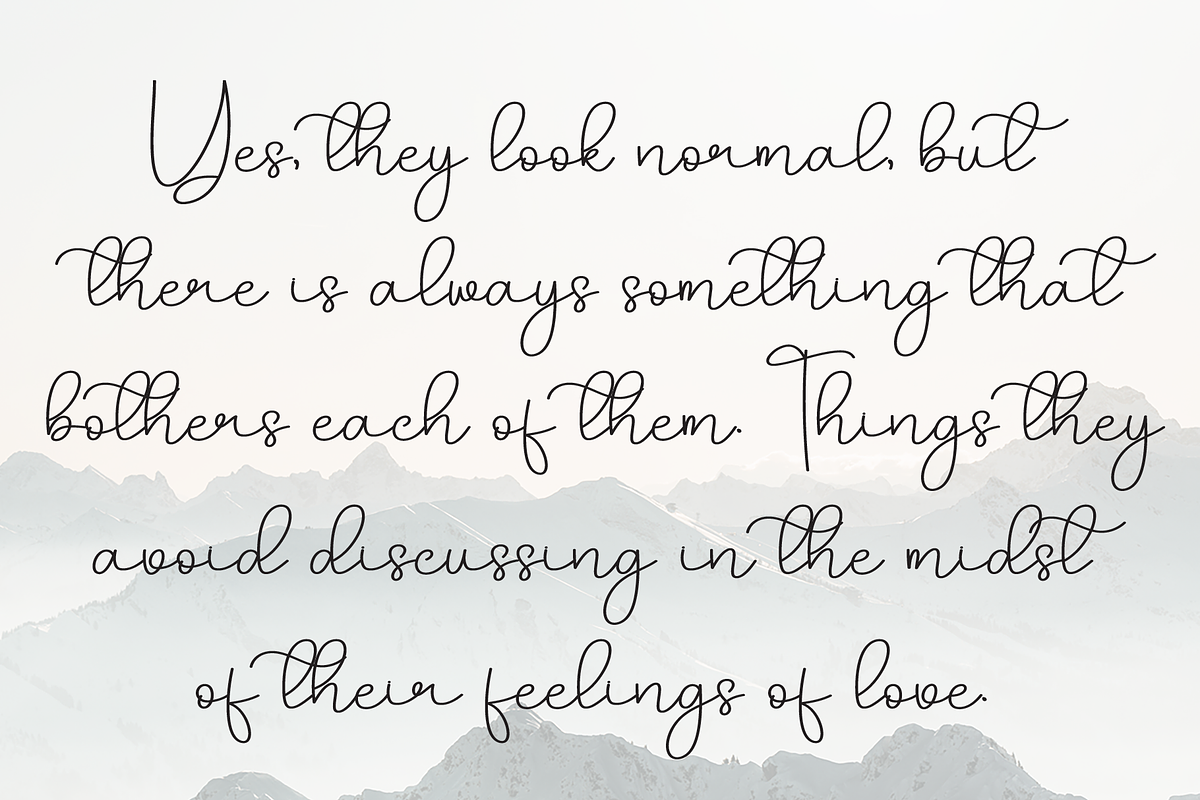 Yes, they look normal, but
there is always something that
bothers each of them. Things they
avoid discussing in the midst
of their feelings of love.